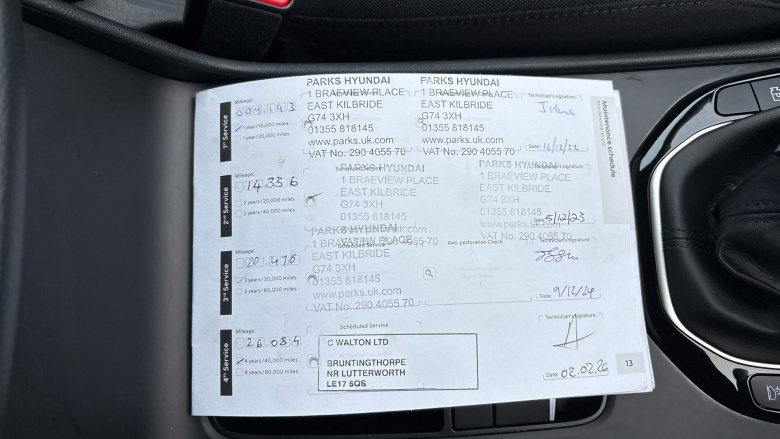 PARKS HYUNDAI PARKS HYUNDAI
1 BRAEVIEW PLACE 1 BRAEVIEW PLACE
EAST KILBRIDE EAST KILBRIDE
G74 3XH G74 3XH
01355 818145 01355 818145
www.parks.uk.com www.parks.uk.com
VAT No. 290 4055 70 VAT No. 290 4055 70
1st Service
Mileage:
009,143
1 year/10,000 miles
1 year/20,000 miles
Technician's signature
Date: 16/12/22
Maintenance schedule
2nd Service
Mileage:
14336
2 years/20,000 miles
2 years/40,000 miles
PARKS HYUNDAI PARKS HYUNDAI
1 BRAEVIEW PLACE 1 BRAEVIEW PLACE
EAST KILBRIDE EAST KILBRIDE
G74 3XH G74 3XH
01355 818145 01355 818145
www.parks.uk.com www.parks.uk.com
VAT No. 290 4055 70 VAT No. 290 4055 70
Date: 5/12/23
3rd Service
Mileage:
20,476
3 years/30,000 miles
3 years/60,000 miles
PARKS HYUNDAI
1 BRAEVIEW PLACE
EAST KILBRIDE
G74 3XH
01355 818145
www.parks.uk.com
VAT No. 290 4055 70
Scheduled Service
Anti-perforation Check
Technician's signature
Date: 9/12/24
4th Service
Mileage:
26,084
4 years/40,000 miles
4 years/80,000 miles
Scheduled Service
C WALTON LTD
BRUNTINGTHORPE
NR LUTTERWORTH
LE17 5QS
Technician's signature
Date: 02.02.26
13